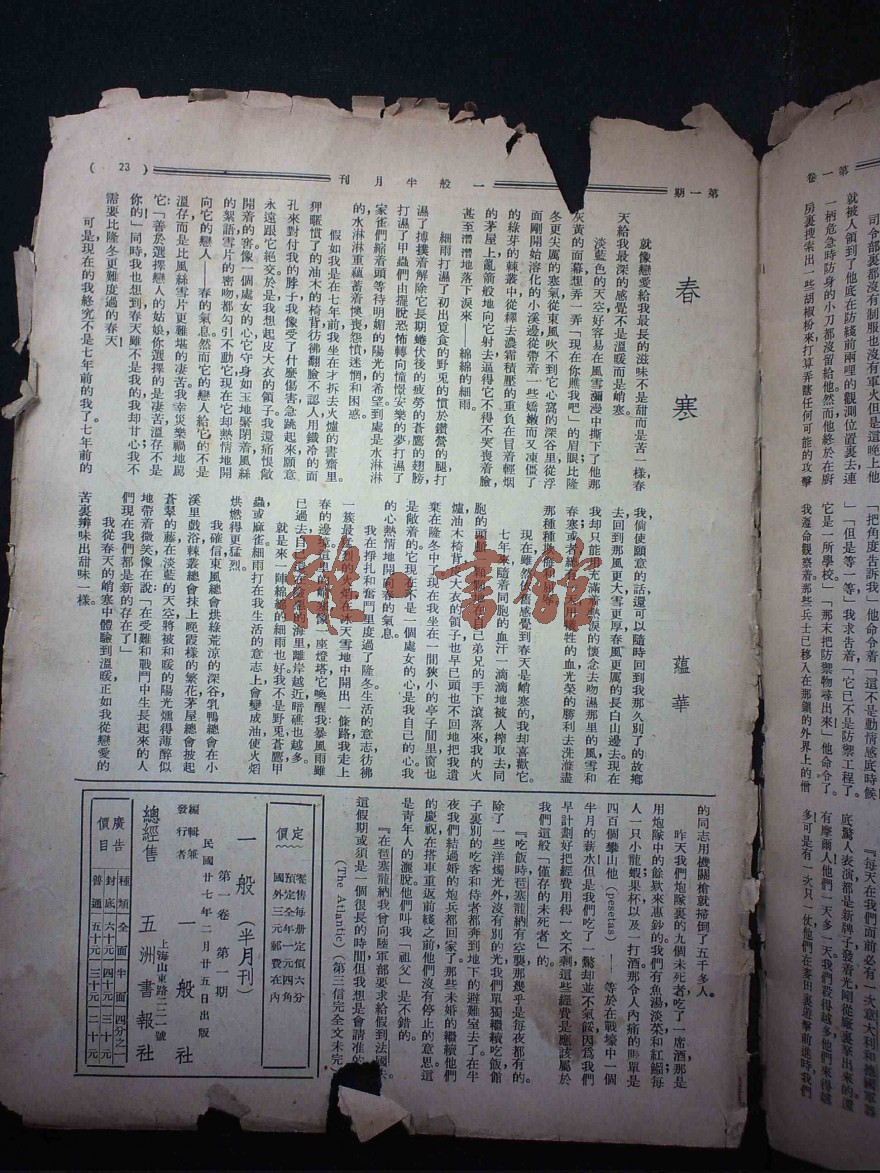 第一卷
司令部裏都沒有制服也沒有軍火但是這晚上他
就被人領到了他底在防綫前兩哩的觀測位置裏去連
一柄危急時防身的小刀都沒留給他。然而他終於在廚
房裏搜索出一些胡椒粉來打算弄瞎任何可能的攻擊
「把角度告訴我」他命令着「這不是動情感底時候
」「但是等一等」我求告着「它已不是防禦工程了。
它是一所學校」「那末把防禦物尋出來」他命令了。
我遵命觀察着那些兵士已移入在那鎭的外界上的
第一期
一般半月刊
(23)
春寒
蘊華
就像戀愛給我最長的滋味不是甜而是苦一樣，春
天給我最深的感覺不是溫暖而是峭寒。
淡藍色的天空好容易在風雪瀰漫中撕下了他那
灰黃的面幕想弄一弄「現在你應我吧」的眉眼比隆
冬更尖厲的寒氣從東風吹不到它心窩的深谷里從浮
面剛開始溶化的小溪邊從帶着一些嬌嫩而又凍僵了
的綠芽的棘叢中從釋去濃霜積壓的重負在冒着輕烟
的茅屋上亂箭般地向它射去逼得它不得不哭喪着臉，
甚至潸潸地落下淚來——綿綿的細雨。
細雨打濕了初出覓食的野兎的慣於鑽營的腿，打
濕了搏撲着解除它長期蜷伏後的疲勞的蒼鷹的翅膀，
打濕了甲蟲們由擺脫恐怖轉向憧憬安樂的夢打濕了
家雀們縮着頭等待明媚的陽光的希望。到處是水淋淋
的水淋淋重蘊蓄着懊喪怨憤迷惘和困惑。
假如我是在七年前，我坐在才拆去火爐的書齋里，
狎暱慣了的油木的椅背彷彿翻臉不認人用鐵冷的面
孔來對付我的脖子我像受了什麼傷害急跳起來願意
永遠跟它絕交於是我想起皮大衣的領子。我還痛恨敞
開着的窗像一個處女的心它守身如玉地緊閉着風絲
的絮語雪片的密吻都勾引不動它現在它却熱情地開
向它的戀人——春的氣息然而它的戀人給它的不是
溫存而是比風絲雪片更難堪的凄苦。我幸災樂禍地罵
它：「善於選擇戀人的姑娘你選擇的是凄苦，溫存不是
你的！」同時我也想到春天雖不是我的我却甘心我不
需要比隆冬更難度過的春天！
可是現在的我終究不是七年前的我了。七年前的
我，倘使願意的話，還可以隨時回到我那久別了的故鄉
去回到那風更大雪更厚春風更厲的長白山邊去。現在
我却只能用充滿着熱淚的懷念去吻濕那里的風雪和
春寒或者總有一天用犧牲的血光榮的勝利去洗滌盡
現在雖然同樣感覺到春天是峭寒的我却喜歡它。
七年來隨着同胞的血汗一滴滴地被人榨取去同
胞的頭顱一顆顆地在自己弟兄的手下滾落來，我的火
爐油木椅背皮大衣的領子也早已頭也不回地把我遺
棄在隆冬中了現在我坐在一間狹小的亭子間里窗也
是敞着的它現在不是一個處女的心是我自己的心。我
的心熱情地開向春的氣息。
我在掙扎和奮鬥里度過了隆冬生活的意志彷彿
一簇最猛烈的火焰在冰天雪地中開出一條路我走上
就是來一陣綿綿的細雨也好我不是野兎蒼鷹甲
蟲或麻雀，細雨打在我生活的意志上會變成油使火焰
烘燃得更猛烈。
我確信東風總會烘綠荒涼的深谷乳鴨總會在小
溪里戲浴棘叢總會抹上晚霞樣的繁花茅屋總會披起
蒼翠的藤在淡藍的天空將被和暖的陽光燻得薄醉似
地帶着微笑像在說：「在受難和戰鬥中生長起來的人
們現在我們都是新的存在了！」
我從春天的峭寒中體驗到溫暖正如我從戀愛的
苦裏辨味出甜味一樣。
的同志用機關槍就掃倒了五千多人。
昨天我們炮隊裏的九個未死者吃了一席酒那是
用炮隊中的餘欵來惠鈔的。我們有魚湯淡菜和紅鯔每
人一只小龍蝦果杯以及一打酒那令人內痛的賬單是
四百個攀山他(pesetas)——等於在戰壕中一個
半月的薪水但是我們吃了一驚却並不氣餒因爲我們
早計劃好把經費用得一文不剩這些經費是應該屬於
我們這般「僅存的未死者」的。
『吃飯時琶塞龍納有空襲那幾乎是每夜都有的。
除了一些洋燭光外沒有別的光我們單獨繼續吃飯館
子裏別的吃客和侍者都奔到地下的避難室去了。在半
夜我們結過婚的炮兵都回家了，那些未婚的繼續他們
的慶祝在搭車重返前綫之前他們沒有停止的意思這
是青年人的灑脫。他們叫我「祖父」是不錯的。
『在琶塞龍納我曾向陸軍部要求給假到法國去。
這假期或須是一個很長的時間但我想是會請准的。』
(The Atlantic)（第三信完全文未完）
定價
零售每册定價六分
預定全年一元四角
國外三元郵費在內
一般（半月刊）
第一卷 第一期
民國廿七年二月廿五日出版
編輯兼發行者 一般社
上海山東路二二一號
總經售 五洲書報社
廣告價目
種類 全面 半面 四分之一
封底 六十元 四十元 三十元
普通 五十元 三十元 二十元
雜·書館